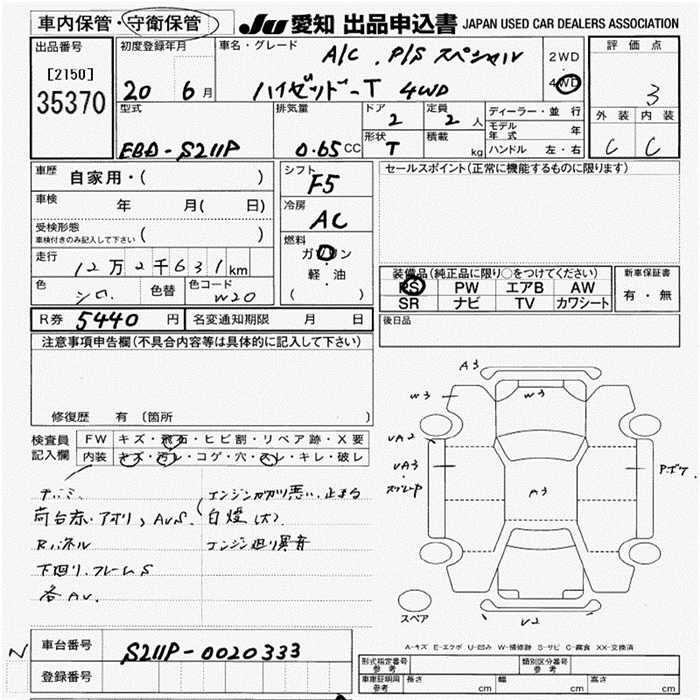 車内保管・守衛保管 JU 愛知 出品申込書 JAPAN USED CAR DEALERS ASSOCIATION
出品番号 初度登録年月 車名・グレード A/C . P/S スペシャル 2WD 評価点
[2150] ・
35370 20 6月 ハイゼット ドー T 4WD 4WD 3
型式 排気量 ドア 2 定員 2人 ディーラー・並行 外装 内装
モデル年式 年
EBD-S211P 0.65CC 形状 T 積載 kg ハンドル 左・右 C C
車歴 自家用・( ) シフト F5 セールスポイント(正常に機能するものに限ります)
車検 年 月( 日) 冷房 AC
受検形態 ( )
車検付きのみ記入して下さい
燃料 ガソリン
走行 12万2千631km 軽・油 装備品(純正品に限り○をつけてください) 新車保証書
色 シロ. 色替 色コード W20 ( ) PS PW エアB AW 有・無
SR ナビ TV カワシート
R券 5440 円 名変通知期限 月 日 後日品
注意事項申告欄(不具合内容等は具体的に記入して下さい)
A3
W3 W3
修復歴 有 (箇所
検査員 FW キズ・飛石・ヒビ割・リペア跡・X要 UA2
記入欄 内装 キズ・汚レ・コゲ・穴・スレ・キレ・破レ
UA3 A3 Pボケ.
エンジンカカリ悪い.止まる
荷台赤.アオリ、AUS. 白煙(大)
Rパネル エンジン廻り異音
下廻リ.フレームS
各AU.
スペア U2
A-キズ E-エクボ U-凹み W-補修跡 S-サビ C-腐食 XX-交換済
N 車台番号 S211P-0020333
登録番号 形式指定番号 参考 類別区分番号 参考
車庫証明用 参考 長さ cm 幅 cm 高さ cm